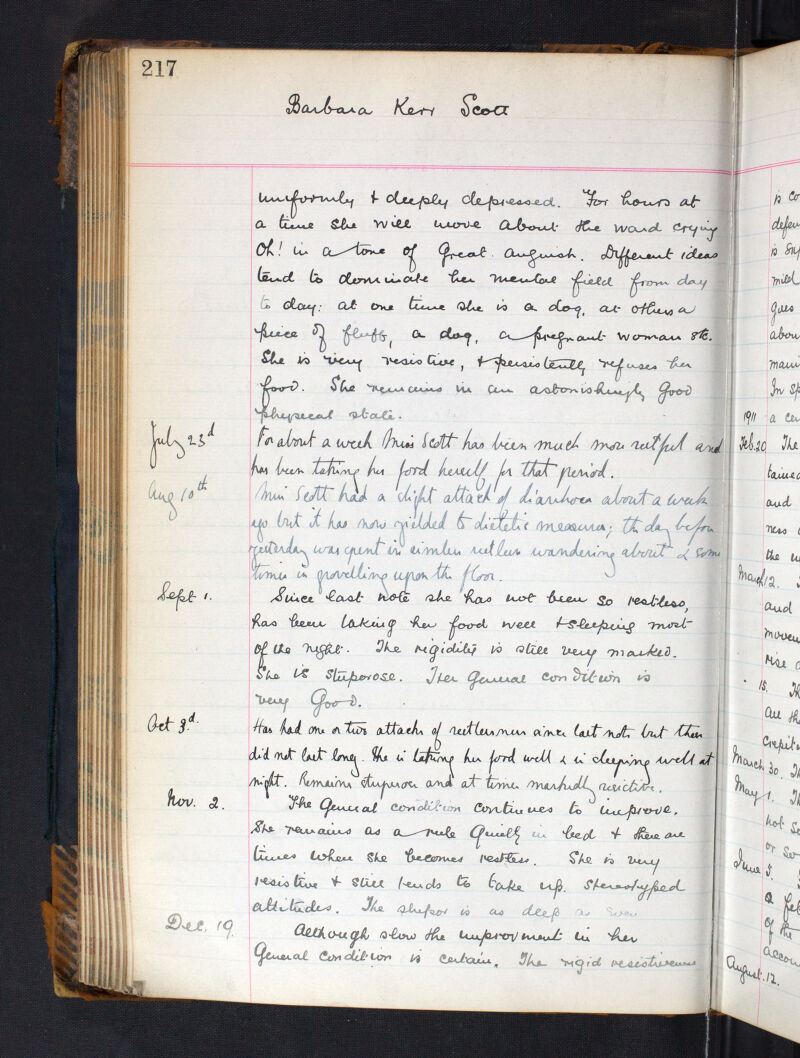 217
Barbara Kerr Scott
uniformly & deeply depressed. For hours at
a time she will move about the ward crying
Oh! in a tone of great anguish. Different ideas
tend to dominate her mental field from day
to day: at one time she is a dog, at others a
piece of fluff, a dog, a pregnant woman etc.
She is very resistive, & persistently refuses her
food. She remains in an astonishingly good
physical state.
July 23d For about a week Miss Scott has been much more restful and
has been taking her food herself for that period.
Aug 10th Miss Scott had a slight attack of diarrhoea about a week
ago but it has now yielded to dietetic measures; the day before
yesterday was spent in similar restless wandering about & some
times in grovelling upon the floor.
Sept 1. Since last note she has not been so restless,
has been taking her food well & sleeping most
of the night. The rigidity is still very marked.
She is stuporose. Her general condition is
very good.
Oct 3d. Has had one or two attacks of restlessness since last note but these
did not last long. She is taking her food well & is sleeping well at
night. Remains stuporose and at times markedly resistive.
Nov. 2. The general condition continues to improve.
She remains as a rule quietly in bed & there are
times when she becomes restless. She is very
resistive & still tends to take up stereotyped
attitudes. The stupor is as deep as ever
Dec. 19. Although slow the improvment in her
general condition is certain. The rigid resistiveness
is co
defen
is
mild
goes
abou
man
In sp
1911 a ce
Feb. 20 The
tained
and
ness
the
March 12.
and
movem
rise
15.
are the
crepit
March 30. Th
May 1. Th
not so
or so
June 3.
a fe
of the
accou
August. 12.